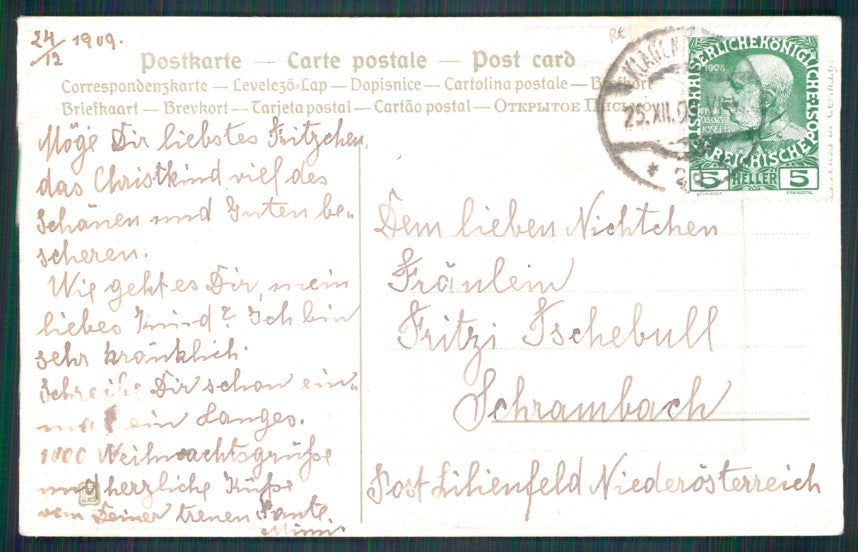 24/12 1909.
Postkarte — Carte postale — Post card
Correspondenzkarte — Levelező-Lap — Dopisnice — Cartolina postale —
Briefkaart — Brevkort — Tarjeta postal — Cartão postal — Открытое
RE
KLAGEN
25.XII.09
1908
KAISERLICHE KÖNIGLICHE
ÖSTERREICHISCHE POST
5 HELLER 5
Möge Dir liebstes Fritzchen,
das Christkind viel des
Schönen und Guten be-
scheren.
Wie geht es Dir, mein
liebes Kind? Ich bin
sehr kränklich.
Schreibe Dir schon ein-
mal ein Langes.
1000 Weihnachtsgrüße
und herzliche Küße
von Deiner treuen Tante
Mimi.
Dem lieben Nichtchen
Fräulein
Fritzi Tschebull
Schrambach
Post Lilienfeld Niederösterreich